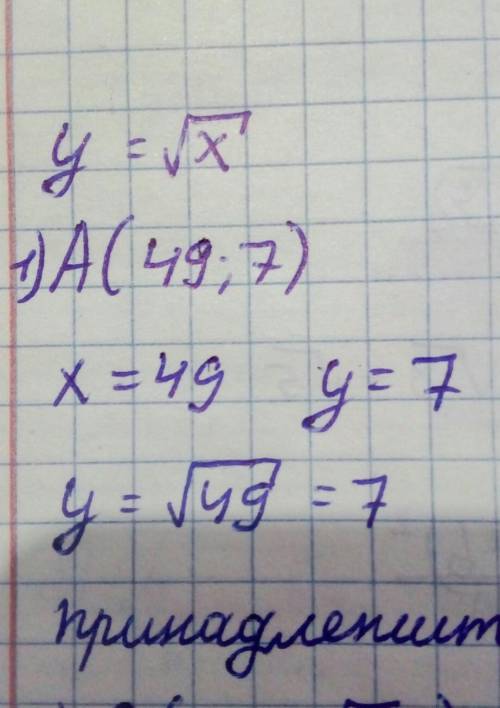 y = √x
1) A(49; 7)
x = 49 y = 7
y = √49 = 7
принадлежит